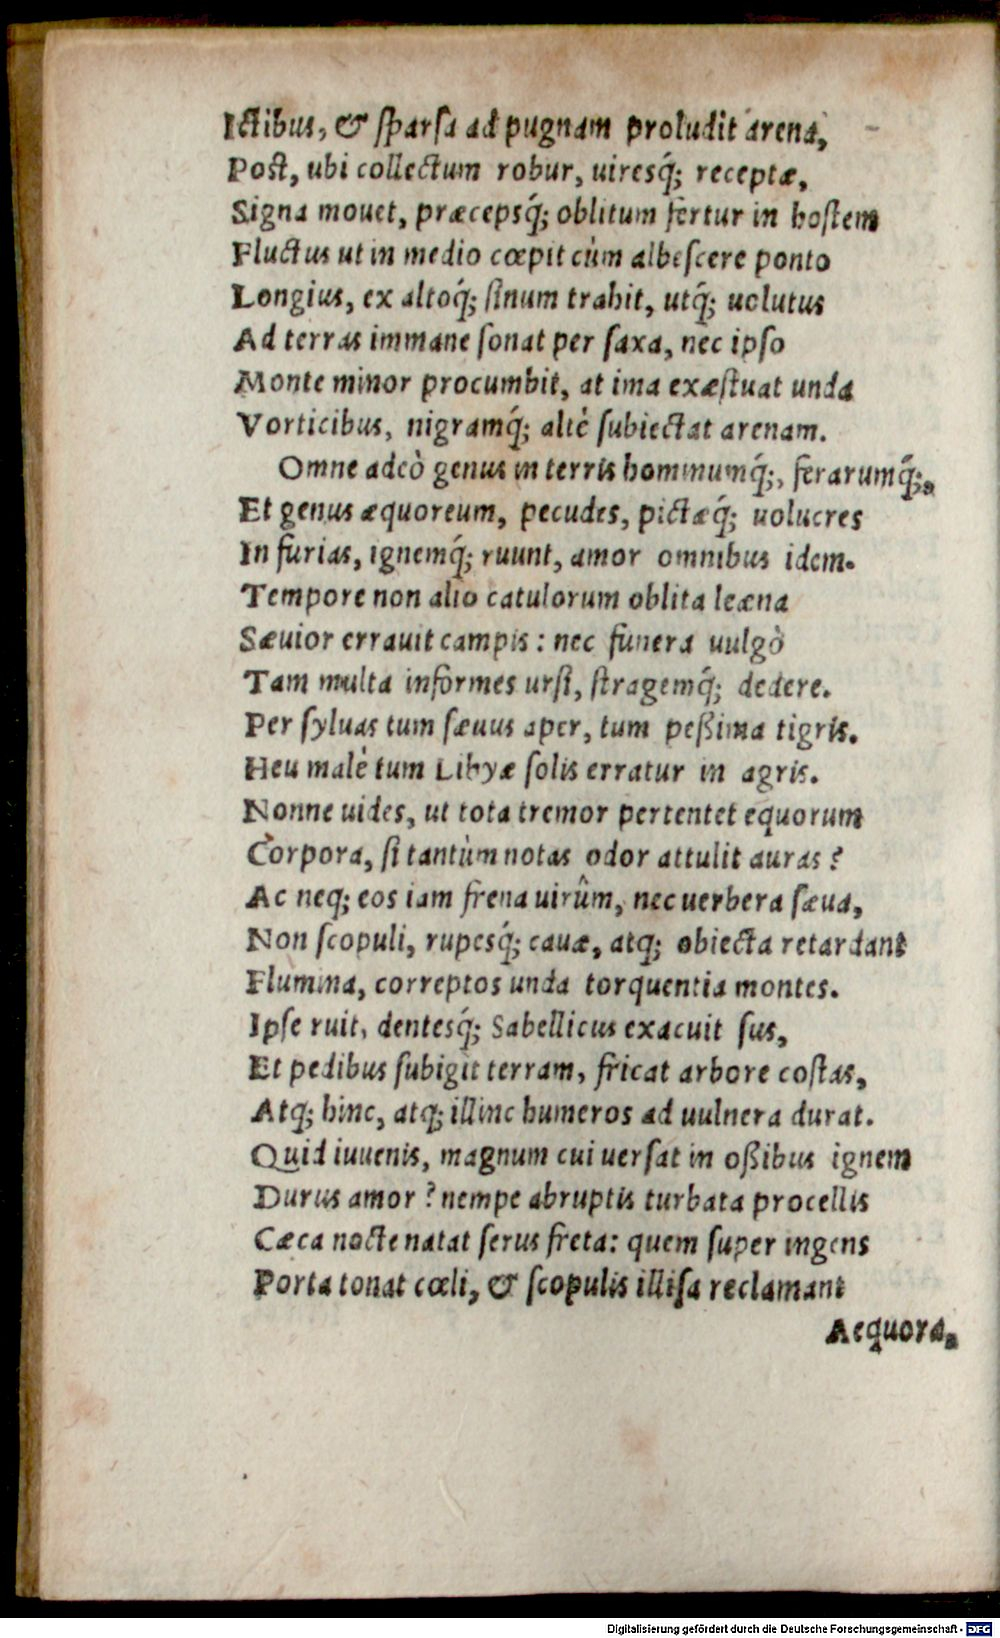 Ictibus, & ſparſa ad pugnam proludit arena,
Poſt, ubi collectum robur, uiresq́; receptæ,
Signa mouet, præcepsq́; oblitum fertur in hoſtem
Fluctus ut in medio cœpit cùm albeſcere ponto
Longius, ex altoq́; ſinum trahit, utq́; uolutus
Ad terras immane ſonat per ſaxa, nec ipſo
Monte minor procumbit, at ima exæſtuat unda
Vorticibus, nigramq́; altè ſubiectat arenam.
Omne adeò genus in terris hominumq́;, ferarumq́;,
Et genus æquoreum, pecudes, pictæq́; uolucres
In furias, ignemq́; ruunt, amor omnibus idem.
Tempore non alio catulorum oblita leæna
Sæuior errauit campis: nec funera uulgò
Tam multa informes urſi, ſtragemq́; dedere.
Per ſyluas tum ſæuus aper, tum peßima tigris.
Heu malè tum Libyæ ſolis erratur in agris.
Nonne uides, ut tota tremor pertentet equorum
Corpora, ſi tantùm notas odor attulit auras?
Ac neq; eos iam frena uirûm, nec uerbera ſæua,
Non ſcopuli, rupesq́; cauæ, atq; obiecta retardant
Flumina, correptos unda torquentia montes.
Ipſe ruit, dentesq́; Sabellicus exacuit ſus,
Et pedibus ſubigit terram, fricat arbore coſtas,
Atq; hinc, atq; illinc humeros ad uulnera durat.
Quid iuuenis, magnum cui uerſat in oßibus ignem
Durus amor? nempe abruptis turbata procellis
Cæca nocte natat ſerus freta: quem ſuper ingens
Porta tonat cœli, & ſcopulis illiſa reclamant
Aequora,
Digitalisierung gefördert durch die Deutsche Forschungsgemeinschaft - DFG